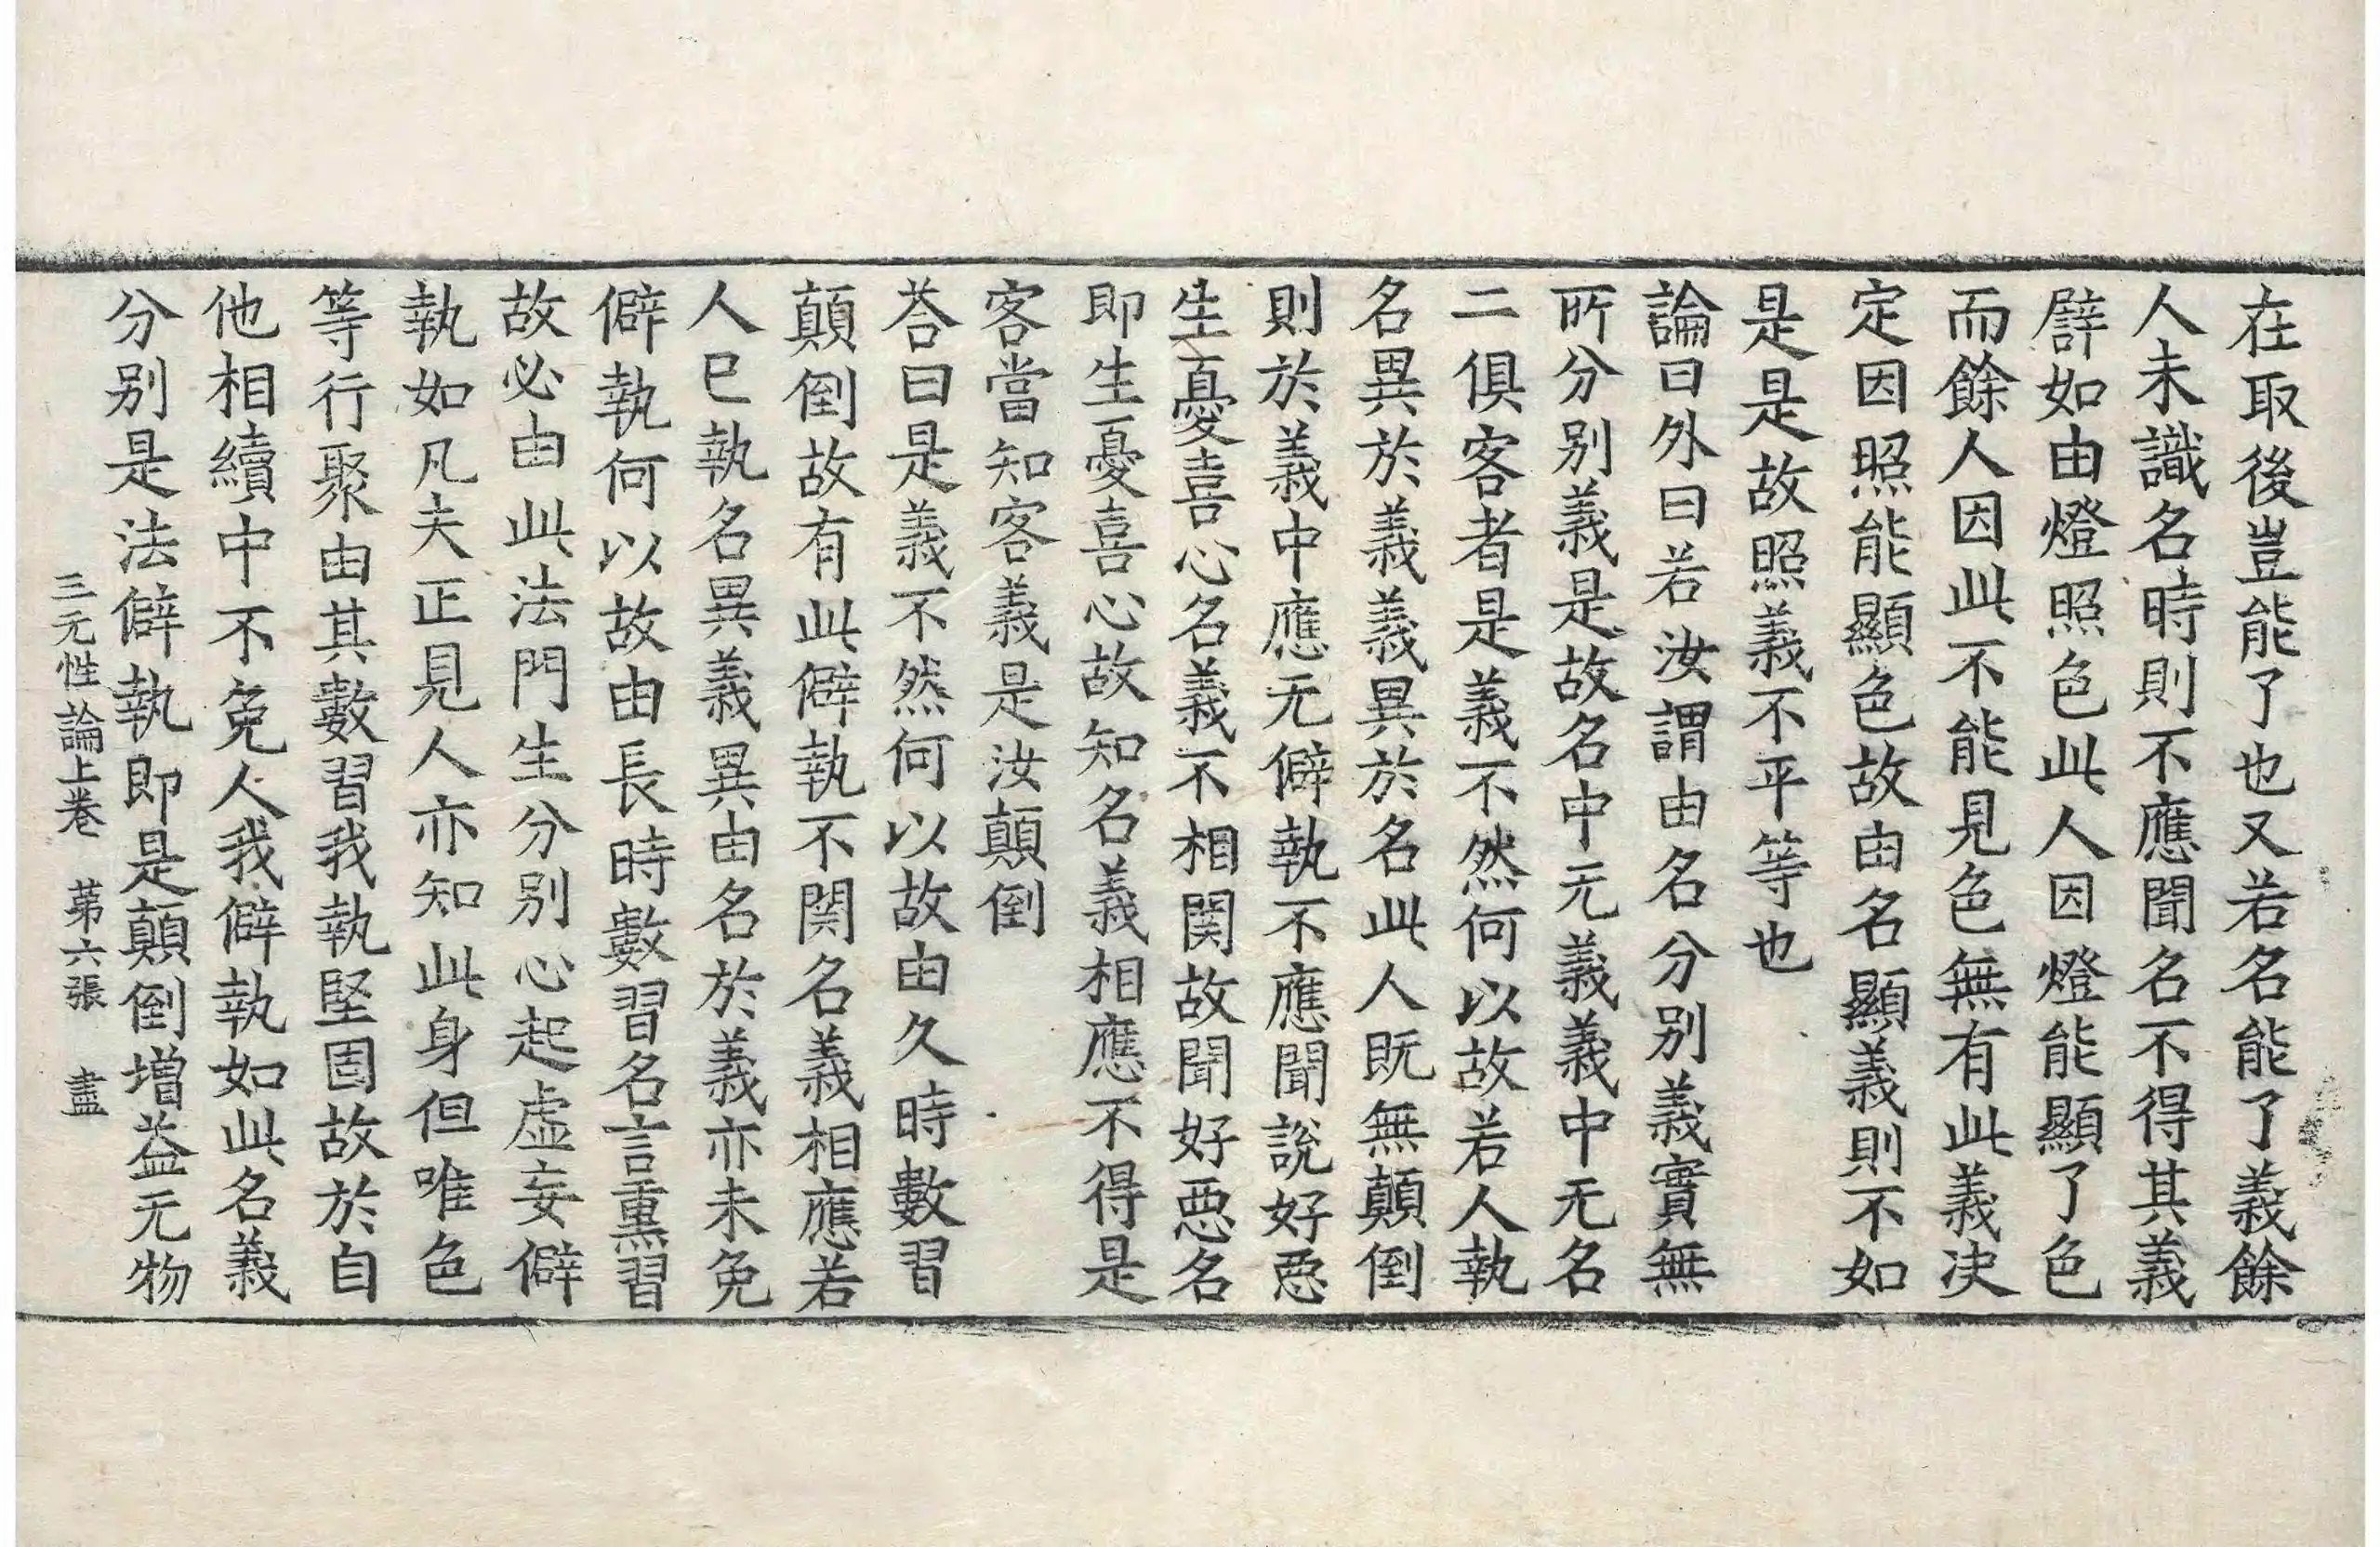 在取後豈能了也又若名能了義餘
人未識名時則不應聞名不得其義
譬如由燈照色此人因燈能顯了色
而餘人因此不能見色無有此義决
定因照能顯色故由名顯義則不如
是是故照義不平等也
論曰外曰若汝謂由名分别義實無
所分别義是故名中无義義中无名
二俱客者是義不然何以故若人執
名異於義義異於名此人既無顛倒
則於義中應无僻執不應聞說好惡
生憂喜心名義不相関故聞好惡名
即生憂喜心故知名義相應不得是
客當知客義是汝顛倒
荅曰是義不然何以故由久時數習
顛倒故有此僻執不関名義相應若
人已執名異義異由名於義亦未免
僻執何以故由長時數習名言熏習
故必由此法門生分别心起虛妄僻
執如凡夫正見人亦知此身但唯色
等行聚由其數習我執堅固故於自
他相續中不免人我僻執如此名義
分别是法僻執即是顛倒增益无物
三无性論上卷　苐六張　盡